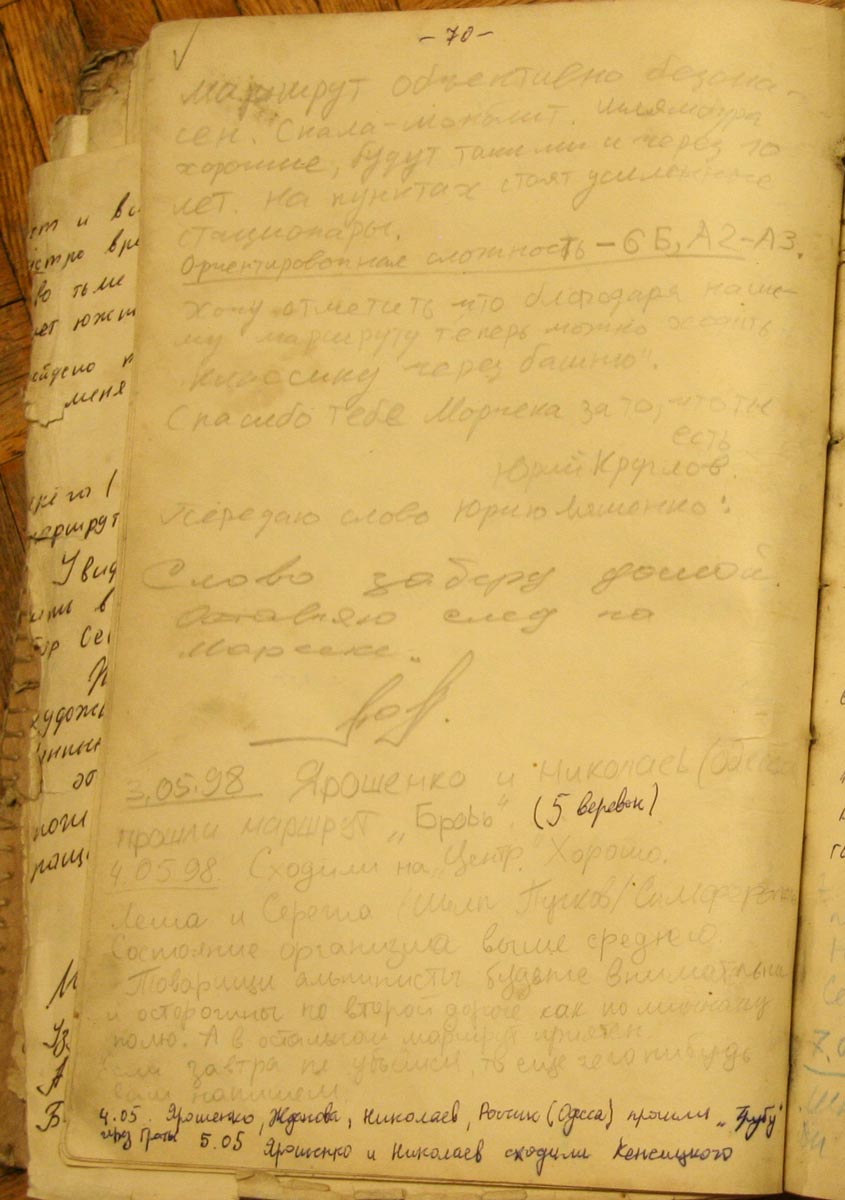 - 70 -
маршрут объективно безопа-
сен. Скала-монолит. Шлямбура
хорошие, будут такими и через 10
лет. На пунктах стоят усиленные
стационары.
Ориентировочная сложность - 6Б, А2-А3.
Хочу отметить что благодаря наше-
му маршруту теперь можно ходить
"классику через башню".
Спасибо тебе Морчека за то, что ты
есть
Юрий Круглов.
Передаю слово Юрию Ляшенко:
Слово заберу домой.
Оставляю след на
Марчеке.
3.05.98 Ярошенко и Николаев (Одесса
прошли маршрут „Бровь" (5 веревок)
4.05.98. Сходили на „Центр". Хорошо.
Леша и Серега Пучков/Симферополь
Состояние организма выше среднего.
Товарищи альпинисты будьте внимательны
и осторожны по второй дороге как по минному
полю. А в остальном маршрут приятен.
Если завтра не убьёмся, то еще чего нибудь
вам напишем.
4.05. Ярошенко, Жданова, Николаев, Ростик (Одесса) прошли „Трубу"
через Гроты 5.05 Ярошенко и Николаев сходили Кенсицкого
ет и
во тьме
меня
маршрут
Увид